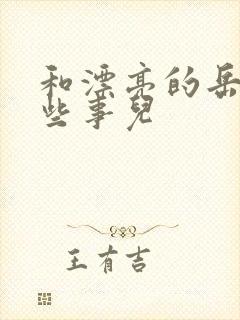 和漂亮的岳
些事兒
王有吉